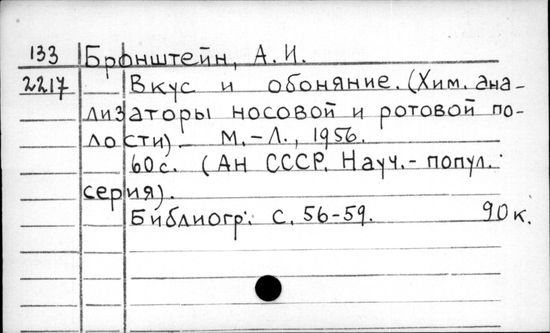 133 Бронштейн, А. И.
2217 Вкус и обоняние. (Хим. ана-
лизаторы носовой и ротовой по-
лости). М.-Л., 1956.
60 с. (АН СССР. Науч.-попул.
серия).
Библиогр: с. 56-59. 90 к.